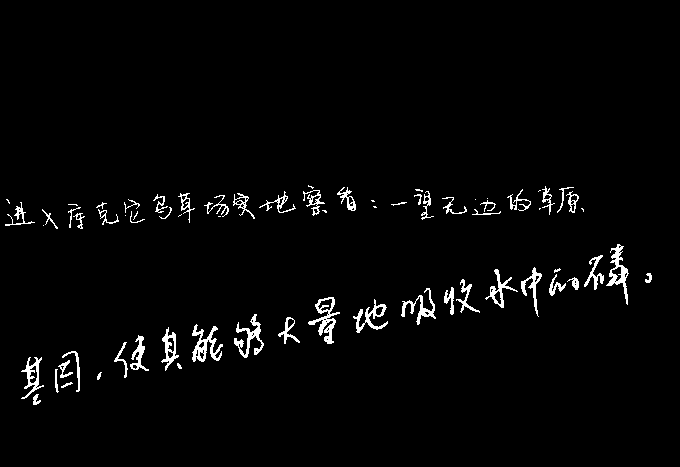 进入库克它乌草场实地察看:一望无边的草原
基因,使其能够大量地吸收水中的磷。